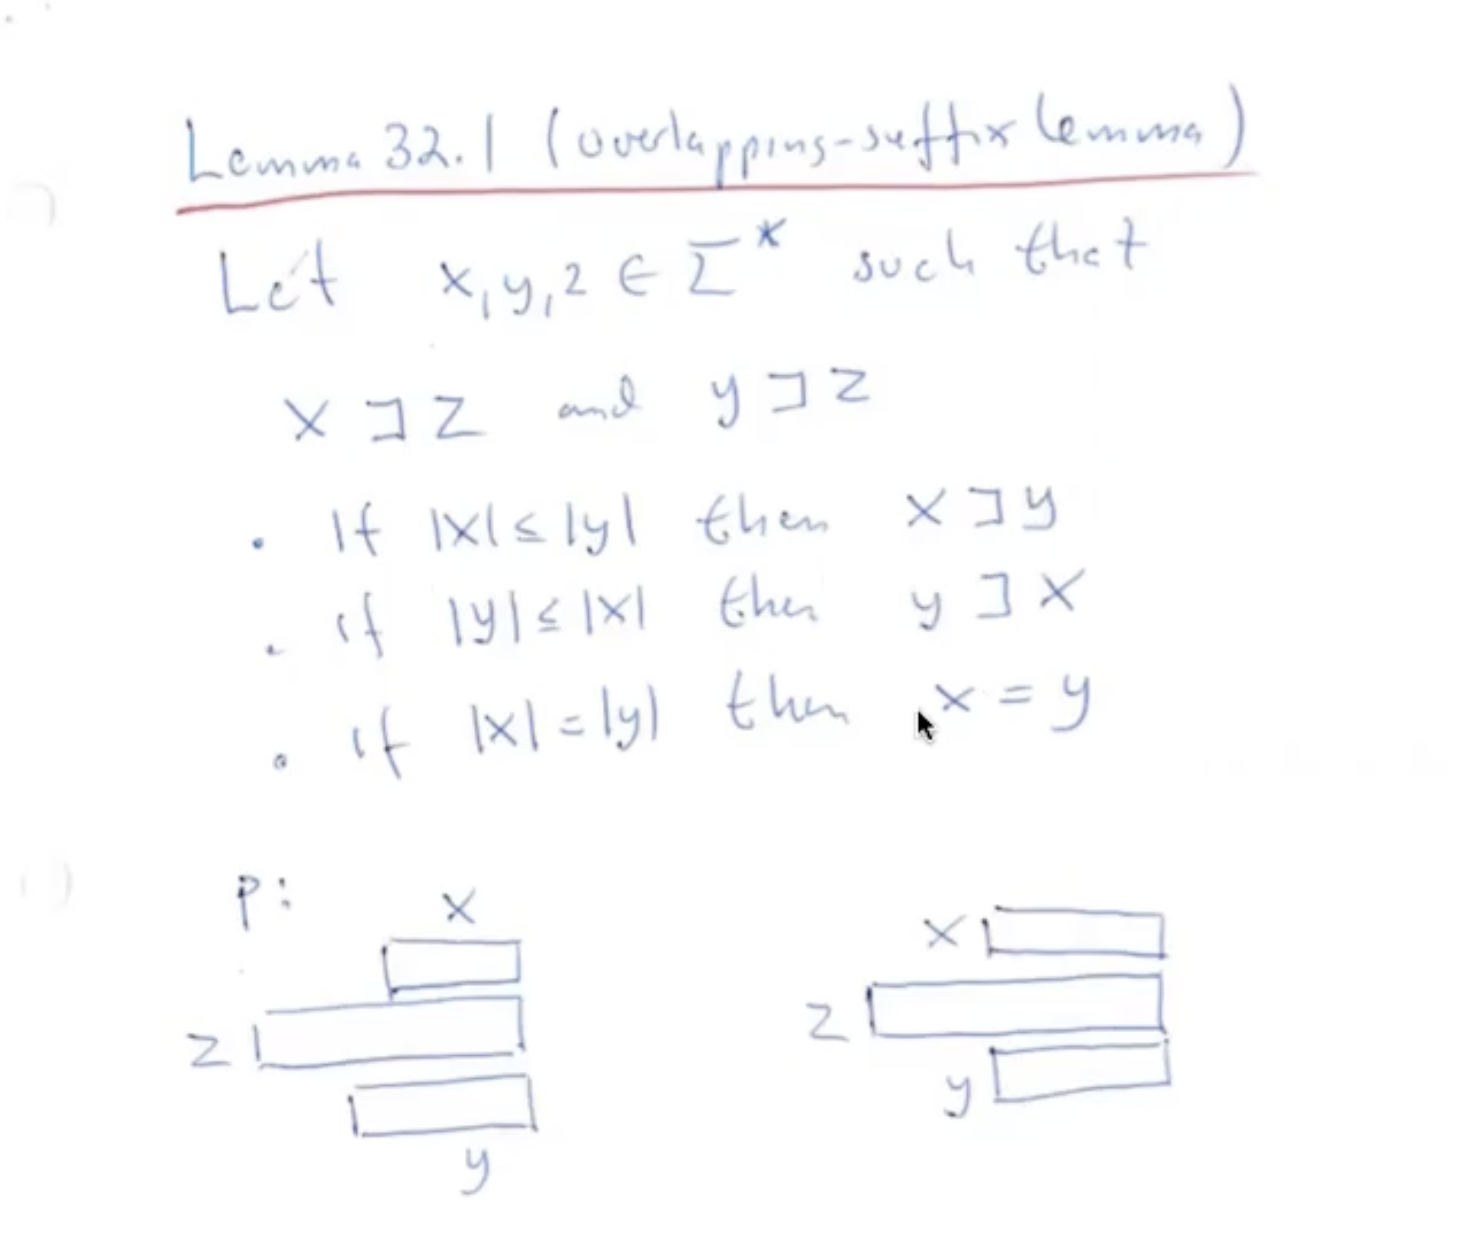 Lemma 32.1 (overlapping-suffix lemma)
Let x, y, z ∈ Σ* such that
x ⊐ z and y ⊐ z
• If |x| ≤ |y| then x ⊐ y
• if |y| ≤ |x| then y ⊐ x
• if |x| = |y| then x = y
P:
x
z
y
x
z
y